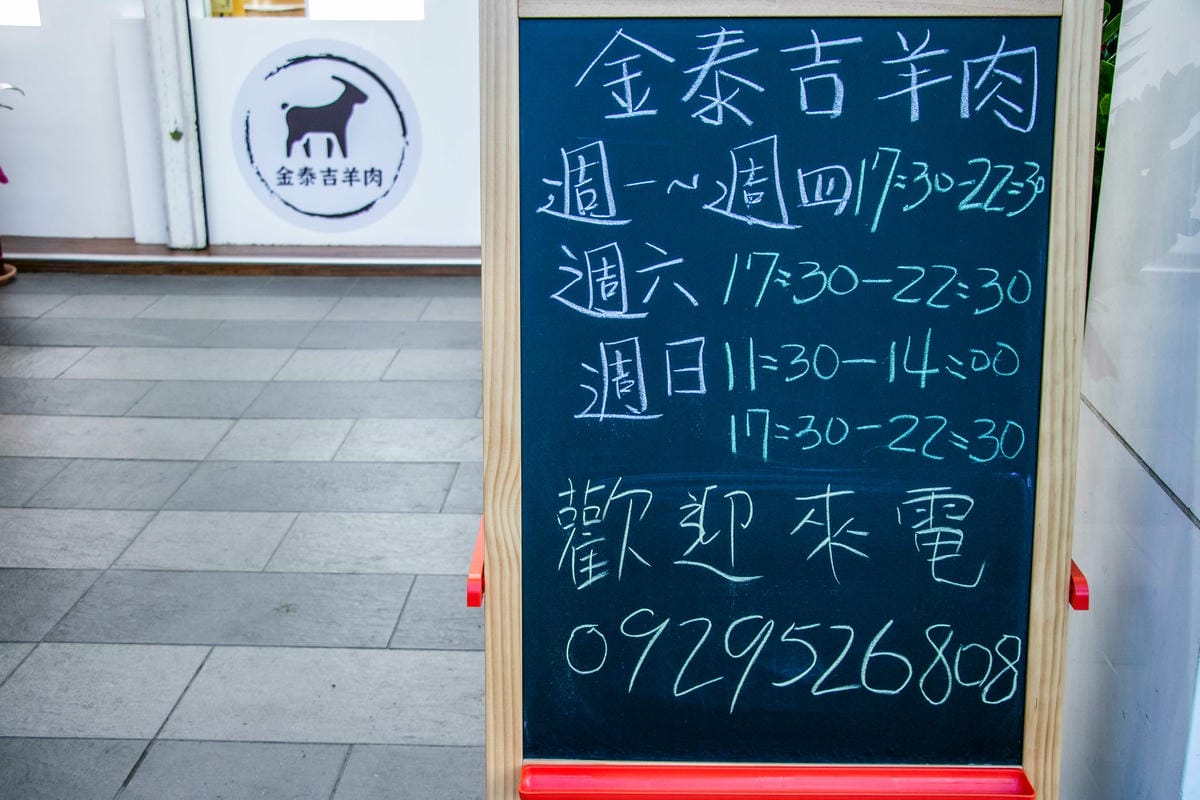 金泰吉羊肉
金泰吉羊肉
週一~週四17:30-22:30
週六 17:30-22:30
週日 11:30-14:00
17:30-22:30
歡迎來電
0929526808